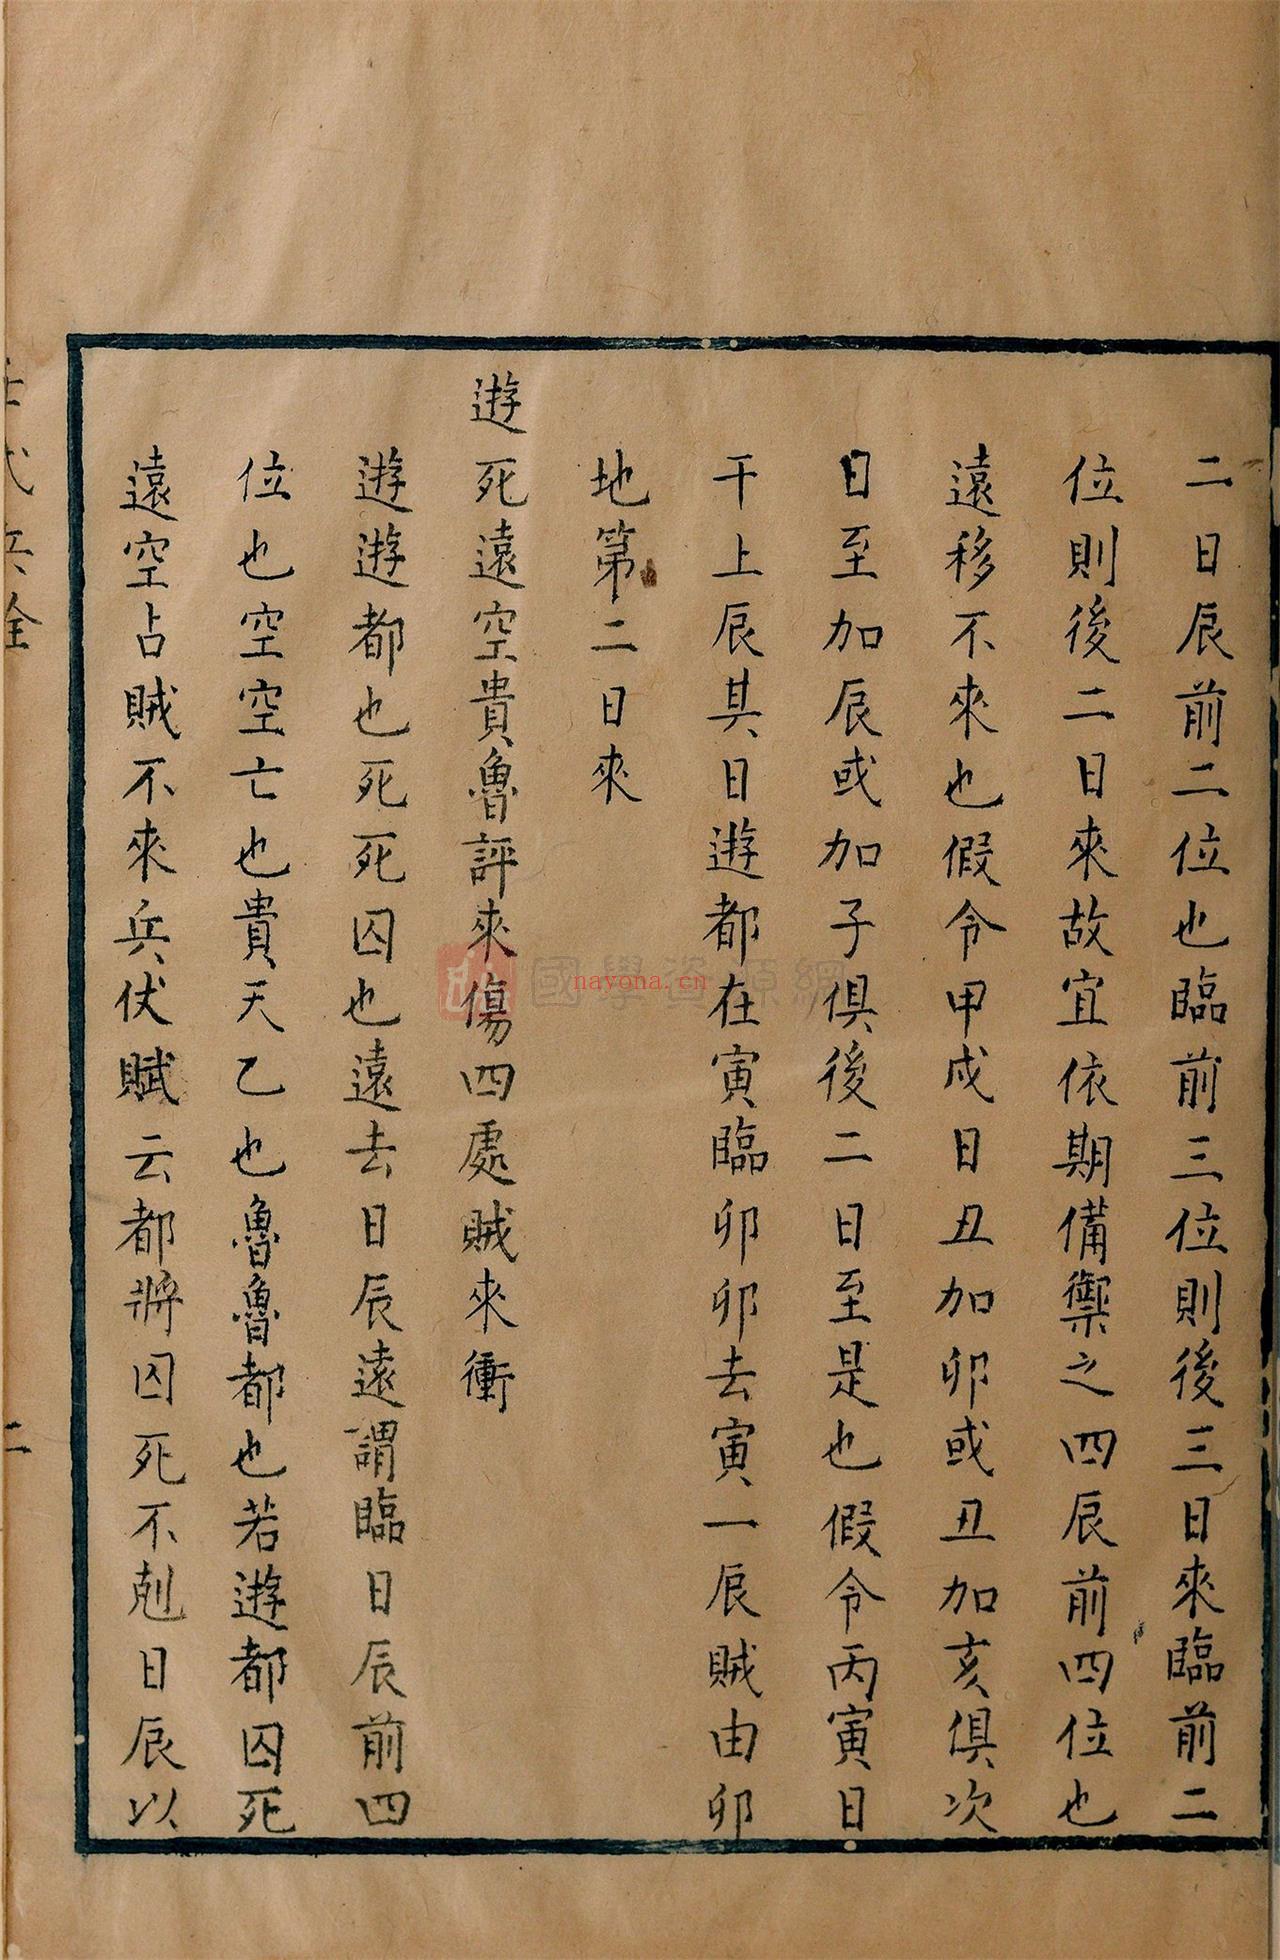 二日辰前二位也臨前三位則後三日來臨前二
位則後二日來故宜依期備禦之四辰前四位也
遠移不來也假令甲戌日丑加卯或丑加亥俱次
日至加辰或加子俱後二日至是也假令丙寅日
干上辰其日遊都在寅臨卯卯去寅一辰賊由卯
地第二日來
遊死遠空貴魯評來傷四處賊來衝
遊遊都也死死囚也遠去日辰遠謂臨日辰前四
位也空空亡也貴天乙也魯魯都也若遊都囚死
遠空占賊不來兵伏賦云都將囚死不剋日辰以
壬式兵詮
二
國學資源網
nayona.cn